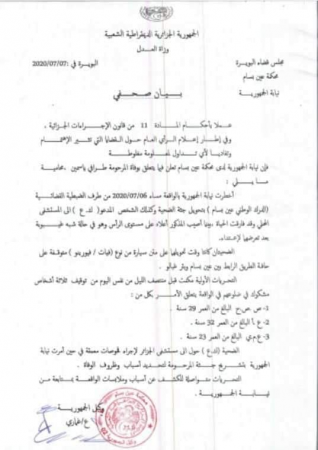 الجمهورية الجزائرية الديمقراطية الشعبية
وزارة العدل
مجلس قضاء البويرة
محكمة عين بسام
نيابة الجمهورية
البويرة في: 2020/07/07
بيان صحفي
عملا بأحكام المادة 11 من قانون الإجراءات الجزائية.
وفي إطار إعلام الرأي العام حول القضايا التي تثير الإهتمام
وتفاديا لأي تداول لمعلومة مغلوطة
فإن نيابة الجمهورية لدى محكمة عين بسام تعلن فيما يتعلق بوفاة المرحومة طرافي ياسمين محامية
ما يلي:
أخطرت نيابة الجمهورية بالواقعة مساء 2020/07/06 من طرف الضبطية القضائية
(الدرك الوطني عين بسام) بتحويل جثة الضحية وكذلك الشخص المدعو (د.ع) الى المستشفى
المحلي وقد فارقت الحياة، بينما أصيب المذكور أعلاه على مستوى الرأس وهو في حالة شبه غيبوبة
بعد تعرضها لإعتداء.
الضحيتان كانتا وقت تحويلهما على متن سيارة من نوع (فيات / فيورينو) متوقفة على
حافة الطريق الرابط بين عين بسام وبئر غبالو.
التحريات الأولية مكنت قبل منتصف الليل من نفس اليوم من توقيف ثلاثة أشخاص
مشكوك في ضلوعهم في الواقعة يتعلق الأمر بكل من:
1- ص.ح البالغ من العمر 29 سنة.
2- ع.أ البالغ من العمر 32 سنة.
3- ع.م.ي البالغ من العمر 23 سنة.
الضحية (د.ع) حول الى مستشفى الجزائر لإجراء فحوصات معمقة في حين أمرت نيابة
الجمهورية بتشريح جثة المرحومة لتحديد أسباب وظروف الوفاة.
التحريات متواصلة للكشف عن أسباب وملابسات الواقعة بمتابعة من
نيابة الجمهورية.
وكيل الجمهورية